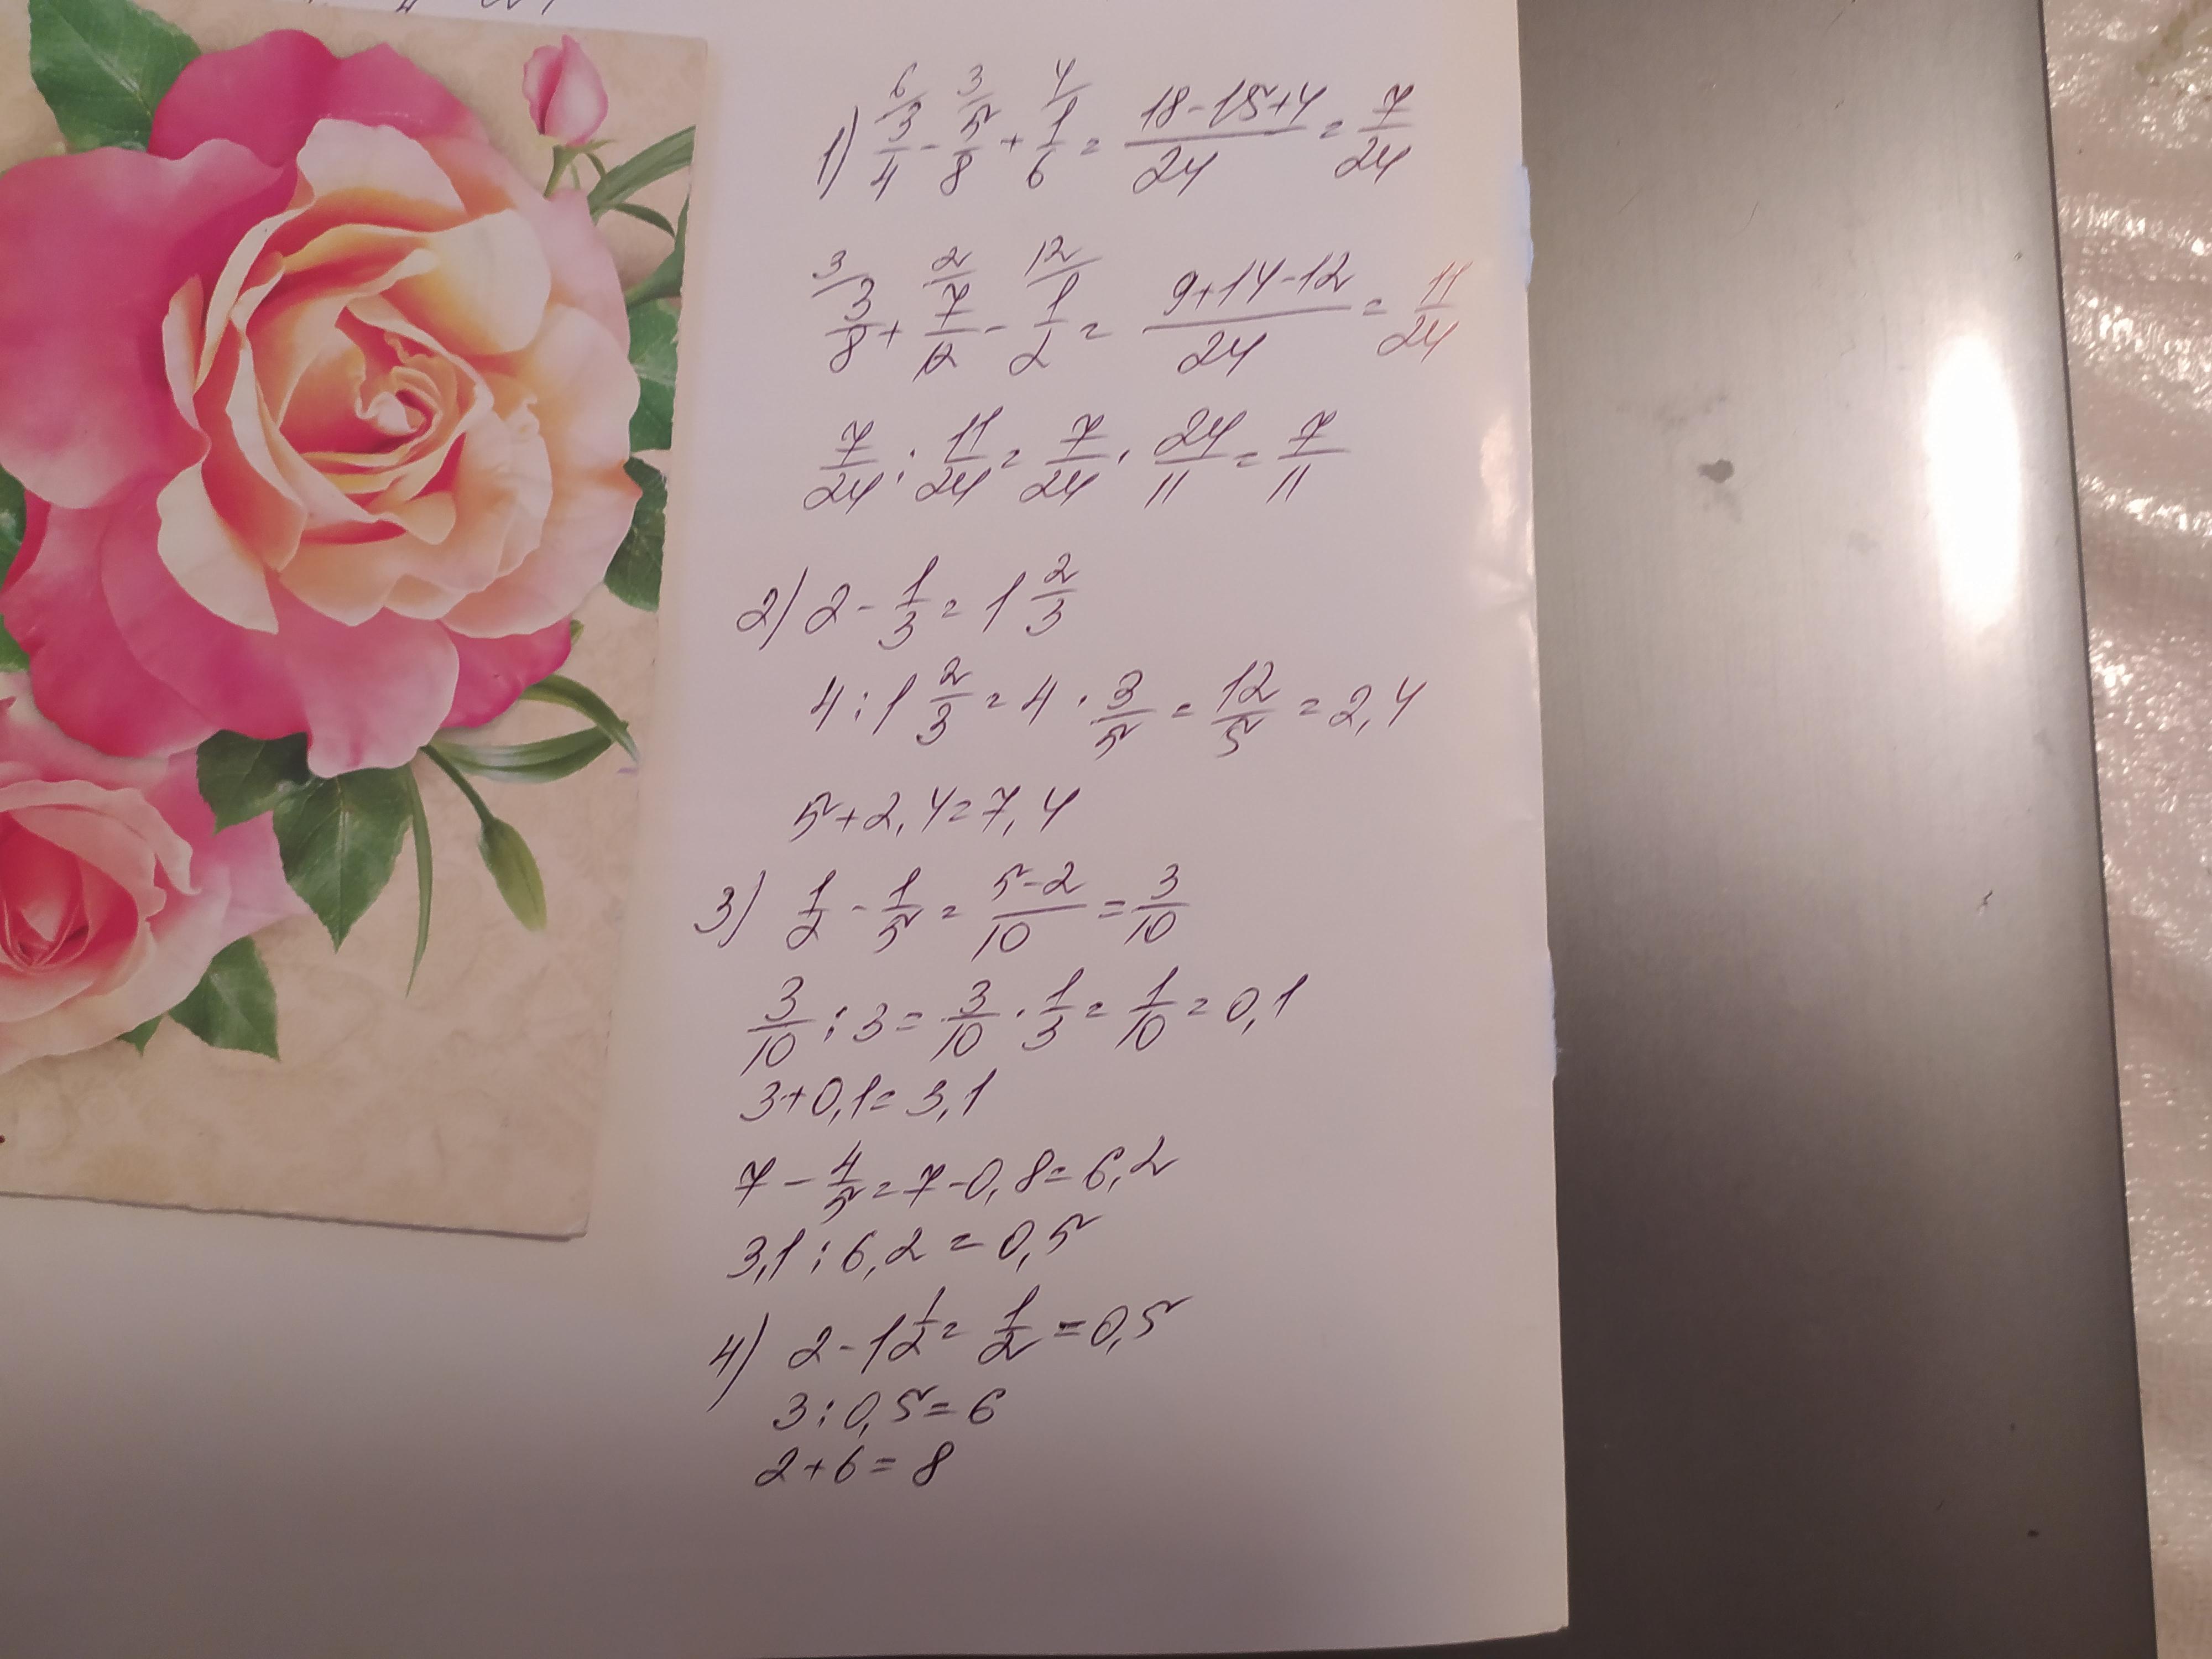 1) 6/ 3/4 - 3/ 5/8 + 4/ 1/6 = (18-15+4)/24 = 7/24
3/ 3/8 + 2/ 7/12 - 12/ 1/2 = (9+14-12)/24 = 11/24
7/24 : 11/24 = 7/24 · 24/11 = 7/11
2) 2 - 1/3 = 1 2/3
4 : 1 2/3 = 4 · 3/5 = 12/5 = 2,4
5+2,4=7,4
3) 1/2 - 1/5 = (5-2)/10 = 3/10
3/10 : 3 = 3/10 · 1/3 = 1/10 = 0,1
3+0,1=3,1
7 - 4/5 = 7-0,8=6,2
3,1 : 6,2 = 0,5
4) 2 - 1 1/2 = 1/2 = 0,5
3 : 0,5 = 6
2+6=8